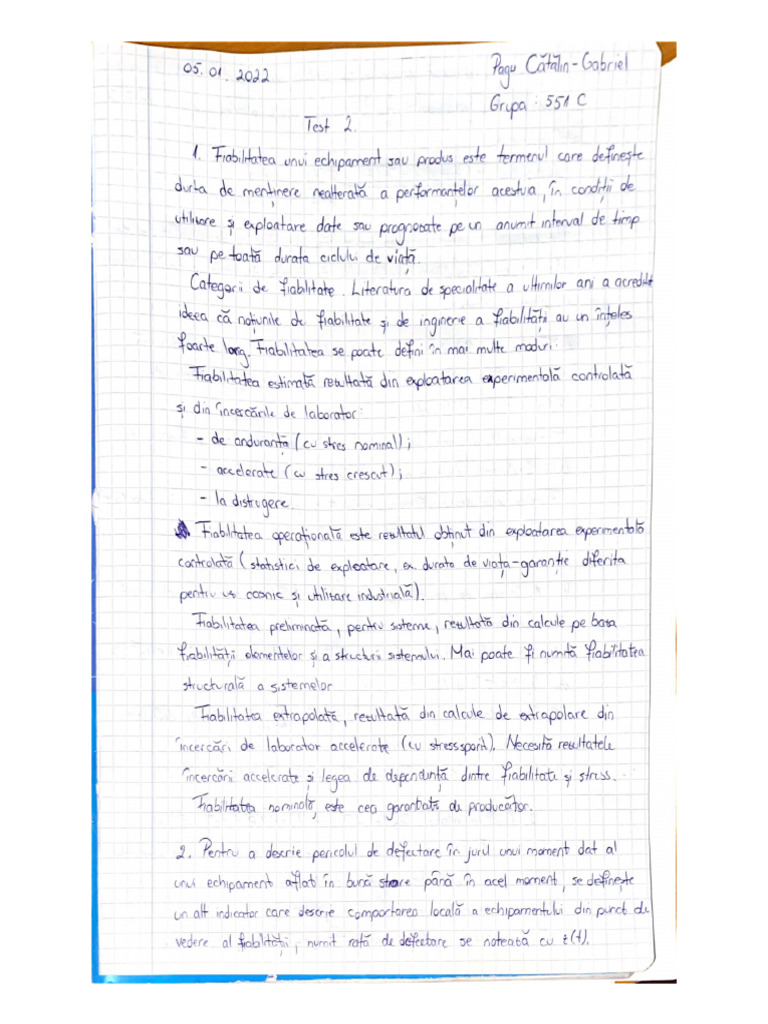 05.01.2022
Pagu Cătălin-Gabriel
Grupa: 551 C
Test 2.
1. Fiabilitatea unui echipament sau produs este termenul care definește
durta de menținere nealterată a performanțelor acestuia, în condiții de
utilizare și exploatare date sau prognozate pe un anumit interval de timp
sau pe toată durata ciclului de viață.
Categorii de fiabilitate. Literatura de specialitate a ultimilor ani a acreditat
ideea că noțiunile de fiabilitate și de inginerie a fiabilității au un înțeles
foarte larg. Fiabilitatea se poate defini în mai multe moduri:
Fiabilitatea estimată resultată din exploatarea experimentală controlată
și din încercările de laborator:
- de anduranță (cu stres nominal);
- accelerate (cu stres crescut);
- la distrugere.
Fiabilitatea operațională este resultatul obținut din exploatarea experimentală
controlată (statistici de exploatare, ex. durata de viața-garanție diferita
pentru uz casnic și utilizare industrială).
Fiabilitatea preliminată, pentru sisteme, resultată din calcule pe baza
fiabilității elementelor și a structurii sistemului. Mai poate fi numită fiabilitatea
structurală a sistemelor
Fiabilitatea extrapolată, resultată din calcule de extrapolare din
încercări de laborator accelerate (cu stress sporit). Necesită resultatele
încercării accelerate și legea de dependență dintre fiabilitate și stress.
Fiabilitatea nominală, este cea garantată de producător.
2. Pentru a descrie pericolul de defectare în jurul unui moment dat al
unui echipament aflat în bună stare până în acel moment, se definește
un alt indicator care descrie comportarea locală a echipamentului din punct de
vedere al fiabilității, numit rată de defectare se noteată cu z(t).